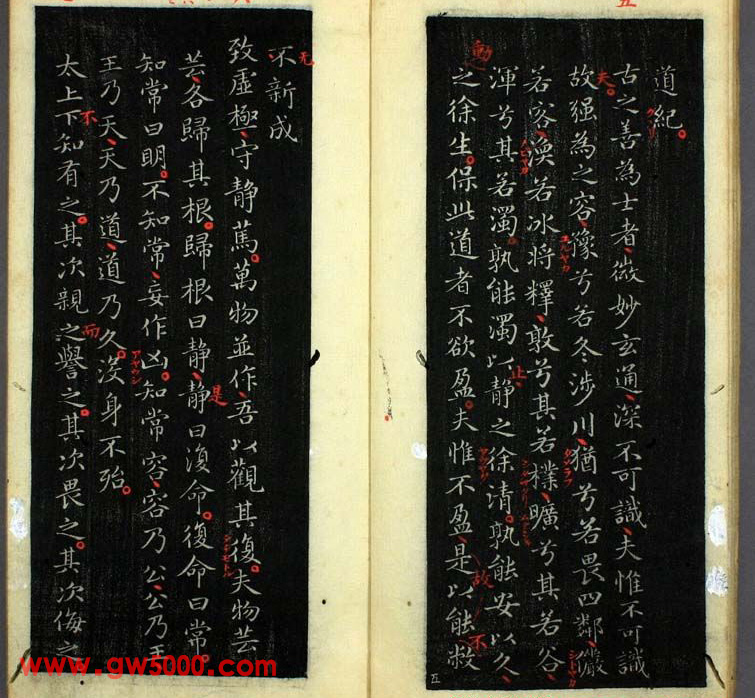 道紀
古之善為士者微妙玄通深不可識夫惟不可識
故强為之容豫兮若冬涉川猶兮若畏四鄰儼
若容渙若冰將釋敦兮其若樸曠兮其若谷
渾兮其若濁孰能濁以静之徐清孰能安以久
之徐生保此道者不欲盈夫惟不盈是以能敝
五
不新成
致虛極守静篤萬物並作吾以觀其復夫物芸
芸各歸其根歸根曰静静曰復命復命曰常
知常曰明不知常妄作凶知常容容乃公公乃王
王乃天天乃道道乃久没身不殆
太上下知有之其次親之譽之其次畏之其次侮之
夫
動
止
故
不
无
是
不
而
www.gw5000.com